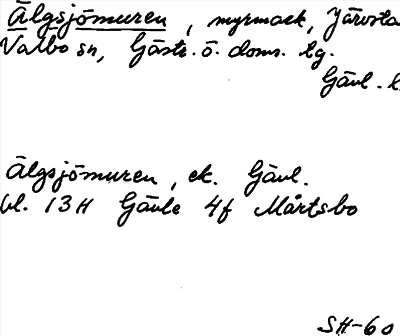 Älgsjömuren, myrmark, Järvsta
Valbo sn, Gästr. ö. doms. lg.
Gävl. l.
Älgsjömuren, ek. Gävl.
bl. 13H Gävle 4f Mårtsbo
SH-60